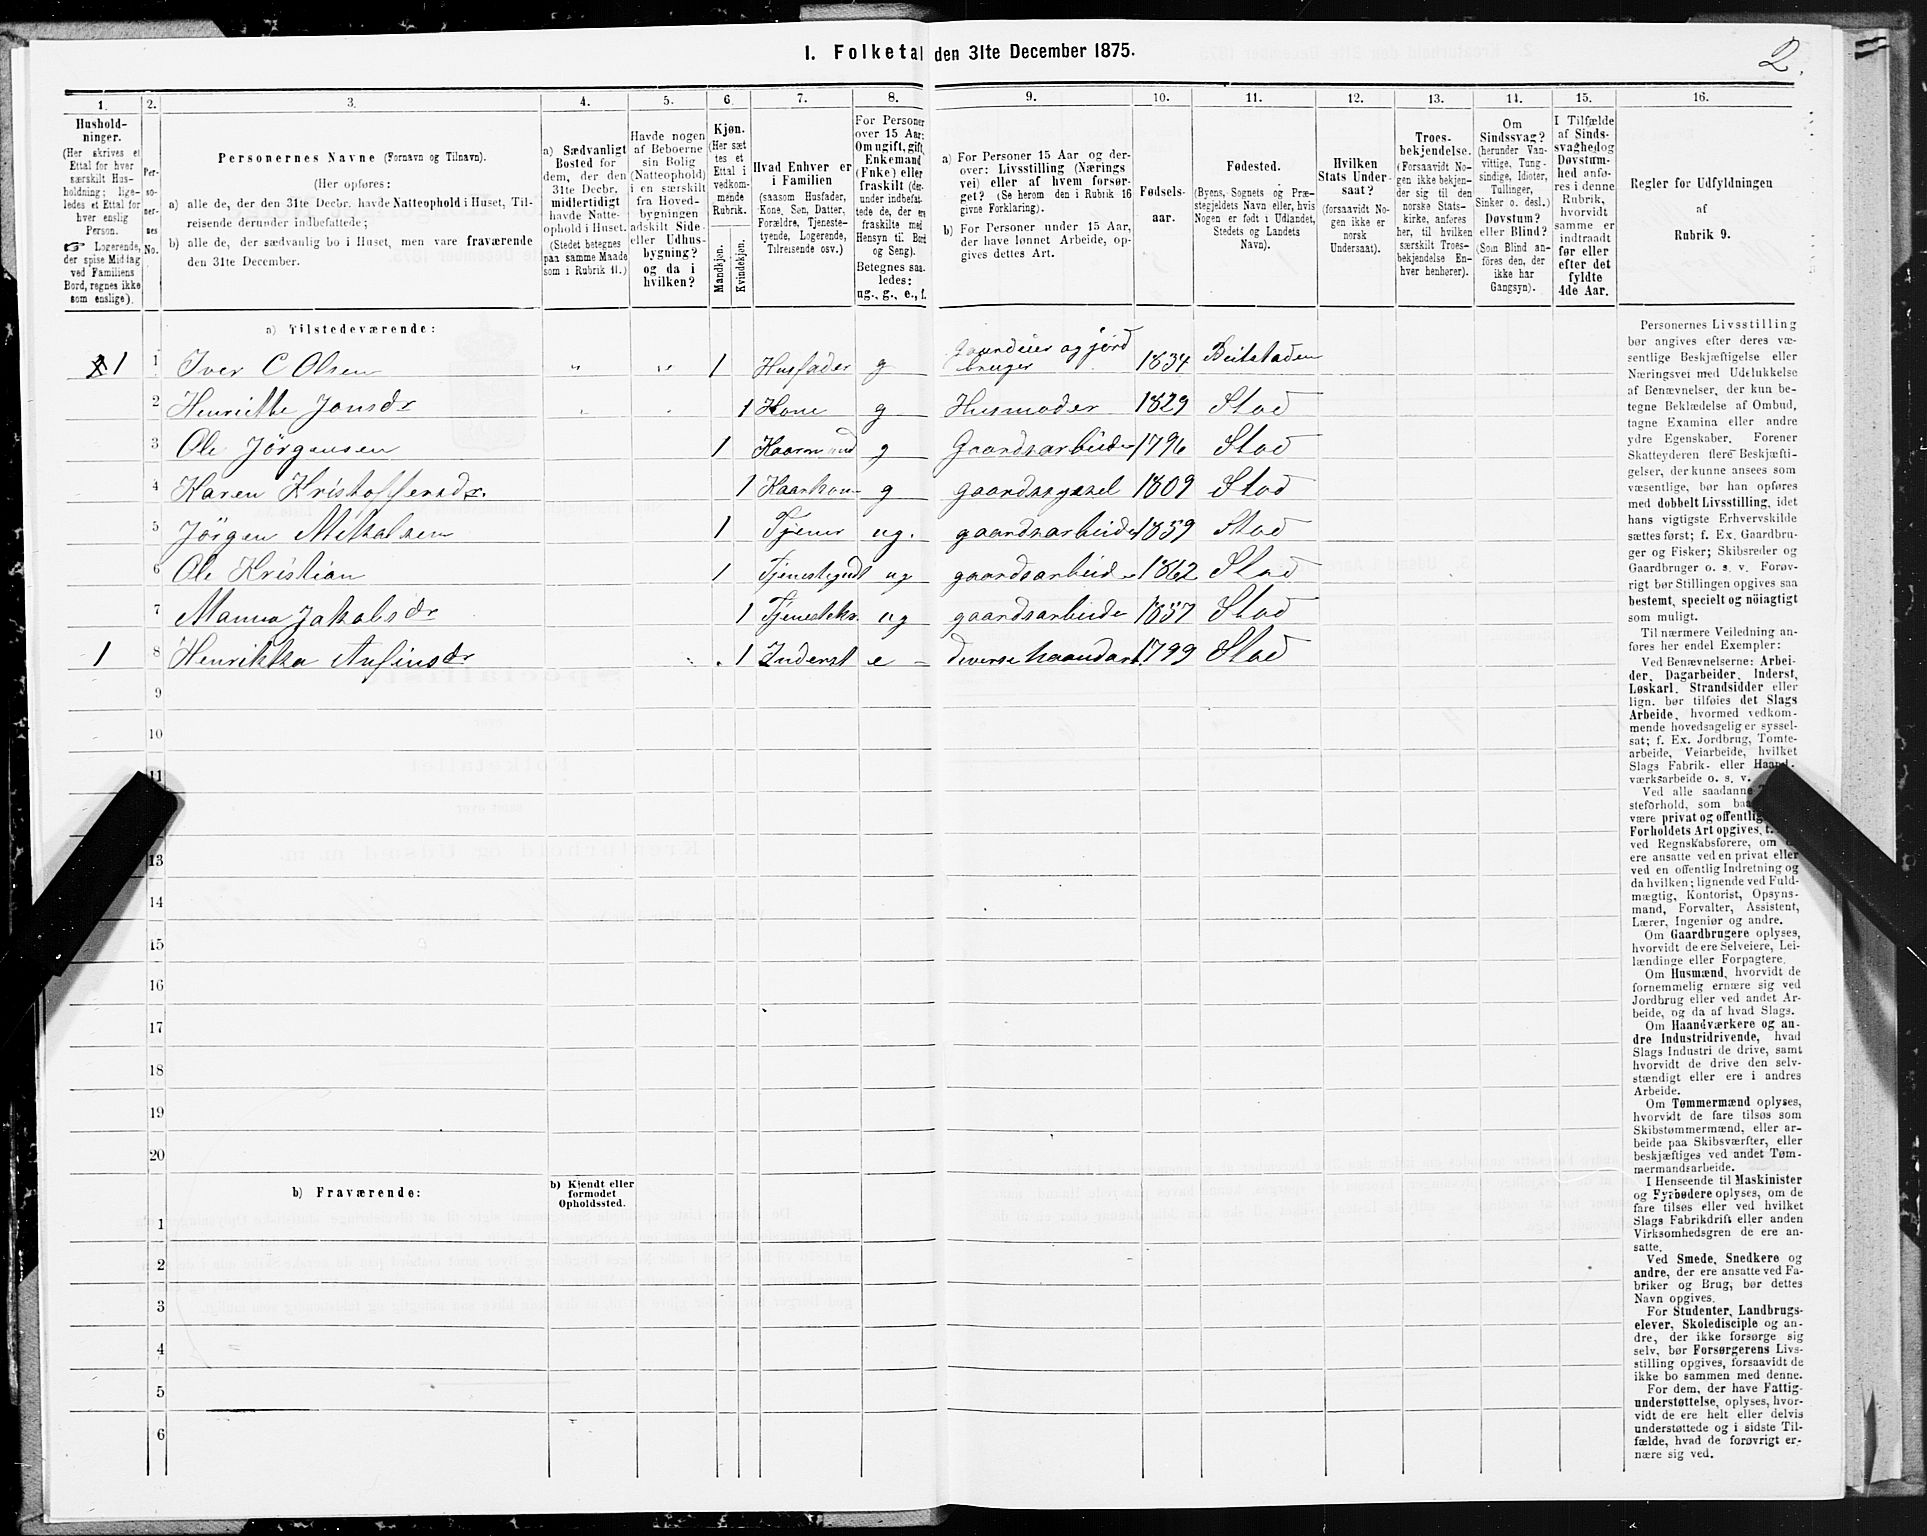 I. Folketal den 31te December 1875.
2.
1.
2.
3.
4.
5.
6.
7.
8.
9.
10.
11.
12.
13.
14.
15.
16.
Hushold-
ninger.
(Her skrives et
Ettal for hver
særskilt Hus-
holdning; lige-
ledes et Ettal for
hver enslig
Person.
☞ Logerende,
der spise Middag
ved Familiens
Bord, regnes ikke
som enslige).
Per-
so-
ner-
nes
No.
Personernes Navne (Fornavn og Tilnavn).
(Her opføres:
a) alle de, der den 31te Decbr. havde Natteophold i Huset, Til-
reisende derunder indbefattede;
b) alle de, der sædvanlig bo i Huset, men vare fraværende
den 31te December.
a) Sædvanligt
Bosted for
dem, der den
31te Decbr.
midlertidigt
havde Natte-
ophold i Huset.
(Stedet betegnes
paa samme Maade
som i Rubrik 11.)
Havde nogen
af Beboerne
sin Bolig
(Natteophold)
i en særskilt
fra Hoved-
bygningen
adskilt Side-
eller Udhus-
bygning?
og da i
hvilken?
Kjøn.
(Her sæt-
tes et
Ettal i
vedkom-
mende
Rubrik.
Mandkjøn.
Kvindekjøn.
Hvad Enhver er
i Familien
(saasom Husfader,
Kone, Søn, Datter,
Forældre, Tjeneste-
tyende, Logerende,
Tilreisende osv.)
For Personer
over 15 Aar:
Om ugift, gift,
Enkemand
(Enke) eller
fraskilt (der-
under indbefat-
tede de, der ere
fraskilte med
Hensyn til Bord
og Seng).
Betegnes saa-
ledes:
ug., g., e., f.
a) For Personer 15 Aar og der-
over: Livsstilling (Nærings
vei) eller af hvem forsør-
get? (Se herom den i Rubrik 16
givne Forklaring).
b) For Personer under 15 Aar,
der have lønnet Arbeide, op-
gives dettes Art.
Fødsels-
aar.
Fødested.
(Byens, Sognets og Præ-
stegjeldets Navn eller, hvis
Nogen er født i Udlandet,
Stedets og Landets
Navn).
Hvilken
Stats Under-
saat?
(forsaavidt No-
gen ikke er
norsk
Undersaat).
Troes-
bekjendelse.
(Forsaavidt No-
gen ikke bekjen-
der sig til den
norske Stats-
kirke, anføres
her, til hvilken
særskilt Troes-
bekjendelse En-
hver henhører).
Om
Sindssvag?
(herunder Van-
vittige, Tung-
sindige, Idioter,
Tullinger,
Sinker o. desl.)
Døvstum?
eller Blind?
(Som Blind an-
føres den, der
ikke har
Gangsyn).
I Tilfælde
af Sinds-
svaghed og
Døvstum-
hed anfø-
res i denne
Rubrik,
hvorvidt
samme er
indtraadt
før eller
efter det
fyldte
4de Aar.
Regler for Udfyldningen
af
Rubrik 9.
a) Tilstedeværende:
1 1 Iver C Olsen " " 1 Husfader g Gaardeier og jord
bruger 1834 Beitstaden
2 Henriette Jonsdr " " 1 Kone g Husmoder 1829 Stod
3 Ole Jörgensen 1 Kaarmand g Gaardsarbeider 1796 Stod
4 Karen Kristoffersdr. 1 Kaarkone g 1809 Stod
5 Jörgen Mikalsen 1 Tjener ug. gaardsarbeide 1859 Stod
6 Ole Kristian 1 ug gaardsarbeide 1862 Stod
7 Jakobsdr 1 ug gaardsarbeide 1857 Stod
1 8 Henrikka Anfinsdr 1 Inderst e diverse haandarb 1799 Stod
9
10
11
13
14
15
16
17
18
19
20
b) Fraværende:
b) Kjendt eller
formodet
Opholdssted.
1
2
3
4
5
6
Personernes Livsstilling
bør angives efter deres væ-
sentlige Beskjæftigelse eller
Næringsvei med Udelukkelse
af Benævnelser, der kun be-
tegne Beklædelse af Ombud,
tagne Examina eller andre
ydre Egenskaber. Forener
Skatteyderen flere Beskjæfti-
gelser, der kunne ansees som
væsentlige, bør han opføres
med dobbelt Livsstilling, idet
hans vigtigste Erhvervskilde
sættes først; f. Ex. Gaardbru-
ger og Fisker; Skibsreder og
Gaardbruger o. s. v. Forøv-
rigt bør Stillingen opgives saa
bestemt, specielt og nöiagtigt
som muligt.
Til nærmere Veiledning an-
føres her endel Exempler:
Ved Benævnelserne: Arbei-
der, Dagarbeider, Inderst,
Løskarl, Strandsidder eller
lign. bør tilføies det Slags
Arbeide, hvormed vedkom-
mende hovedsagelig er syssel-
sat; f. Ex. Jordbrug, Tomte-
arbeide, Veiarbeide, hvilket
Slags Fabrik- eller Haand-
værksarbeide o. s. v.
Ved alle saadanne
steforhold, som
være privat og offentlig
Forholdets Art opgives, t.
ved Regnskabsførere, om
ere ansatte ved en privat eller
ved en offentlig Indretning og
da hvilken; lignende ved Fuld-
mægtig, Kontorist, Opsyns-
mand, Forvalter, Assistent,
Lærer, Ingeniør og andre.
Om Gaardbrugere oplyses,
hvorvidt de ere Selveiere, Lei-
lændinge eller Forpagtere.
Om Husmænd, hvorvidt de
fornemmelig ernære sig ved
Jordbrug eller ved andet Ar-
beide, og da af hvad Slags.
Om Haandværkere og an-
dre Industridrivende, hvad
Slags Industri de drive, samt
hvorvidt de drive den selv-
stændigt eller ere i andres
Arbeide.
Om Tømmermænd oplyses,
hvorvidt de fare tilsøs som
Skibstømmermænd, eller ar-
beide paa Skibsværfter, eller
beskjæftiges ved andet Tøm-
mermandsarbeide.
I Henseende til Maskinister
og Fyrbødere oplyses, om de
fare tilsøs eller ved hvilket
Slags Fabrikdrift eller anden
Virksomhedsgren de ere an-
satte.
Ved Smede, Snedkere og
andre, der ere ansatte ved Fa-
briker og Brug, bør dettes
Navn opgives.
For Studenter, Landbrugs-
elever, Skoledisciple og an-
dre, der ikke forsørge sig
selv, bør Forsørgerens Livs-
stilling opgives, forsaavidt de
ikke bo sammen med denne.
For dem, der have Fattig-
understøttelse, oplyses, hvor-
vidt de ere helt eller delvis
understøttede og i sidste Til-
fælde, hvad de forøvrigt er-
nære sig ved.